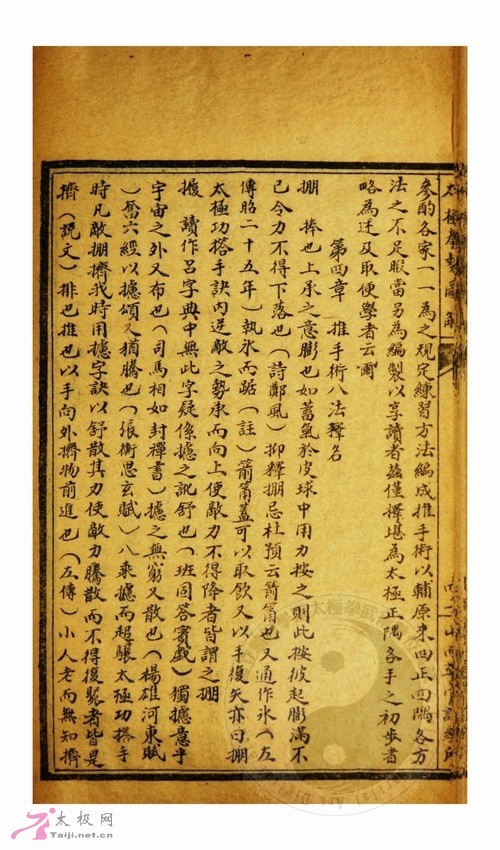 參酌各家一一為之規定練習方法編成推手術以輔原來四正四隅各方
法之不足暇當另為編製以享讀者茲僅擇堪為太極正隅各手之初步者
略為述及取便學者云爾
第四章 推手術八法釋名
掤 捧也上承之意膨也如蓄氣於皮球中用力按之則此按彼起膨滿不
已令力不得下落也(詩鄭風)抑釋掤忌杜預云箭筩也又通作氷(左
傳昭二十五年)執氷而踞(註)箭筩蓋可以取飲又以手復矢亦曰掤
太極功搭手訣內逆敵之勢承而向上使敵力不得降者皆謂之掤
讀作呂字典中無此字疑係攄之訛舒也(班固答賓戲)獨攄意乎
宇宙之外又布也(司馬相如封禪書)攄之無窮又散也(楊雄河東賦
)奮六經以攄頌又猶騰也(張衡思玄賦)八乘攄而超驤太極功搭手
時凡敵掤擠我時用攄字訣以舒散其力使敵力騰散而不得復聚者皆是
擠(說文)排也推也以手向外擠物前進也(左傳)小人老而無知擠
太极网
Taiji.net.cn